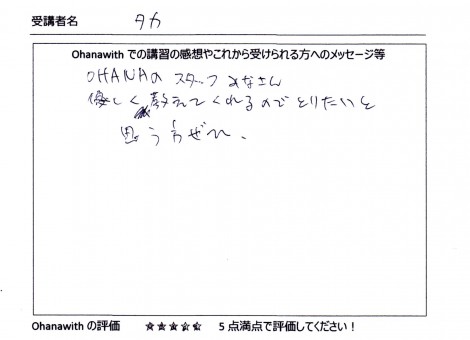 受講者名 タカ
Ohanawith での講習の感想やこれから受けられる方へのメッセージ等
OHANAの スタッフ みなさん
優しく 教えてくれるので とりたいと
思う方ぜひ、
Ohanawith の評価 ★★★★★ 5 点満点で評価してください！